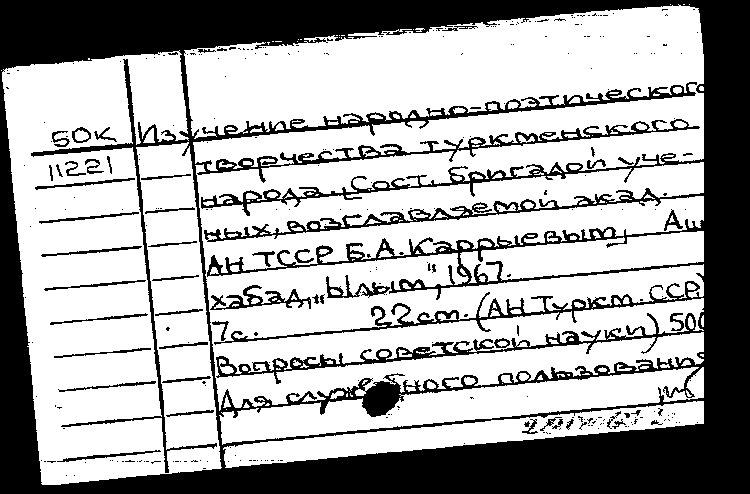 БОК Изучение народно-поэтического
11221 творчества туркменского
народа. Сост. бригадой уче-
ных, возглавляемой акад.
АН ТССР Б.А. Каррыевым, Аш
хабад, „Ылым", 1967.
7с. 22 см. (АН Туркм. ССР.
Вопросы советской науки). 500
Для служебного пользования